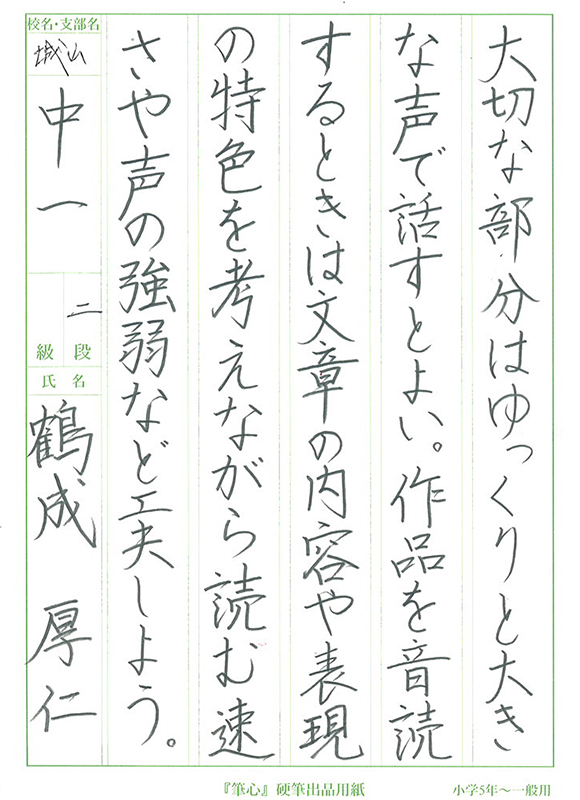 大切な部分はゆっくりと大き
な声で話すとよい。作品を音読
するときは文章の内容や表現
の特色を考えながら読む速
さや声の強弱など工夫しよう。
校名・支部名
城山
中一
二
級 段
氏 名
鶴成 厚仁
『筆心』硬筆出品用紙
小学5年〜一般用